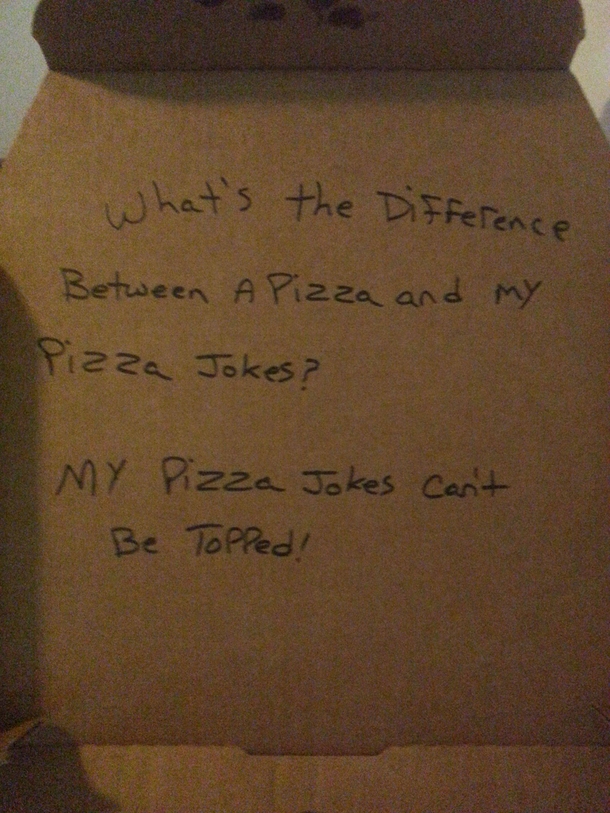 What's the Difference
Between A Pizza and my
Pizza Jokes?
MY Pizza Jokes Can't
Be Topped!